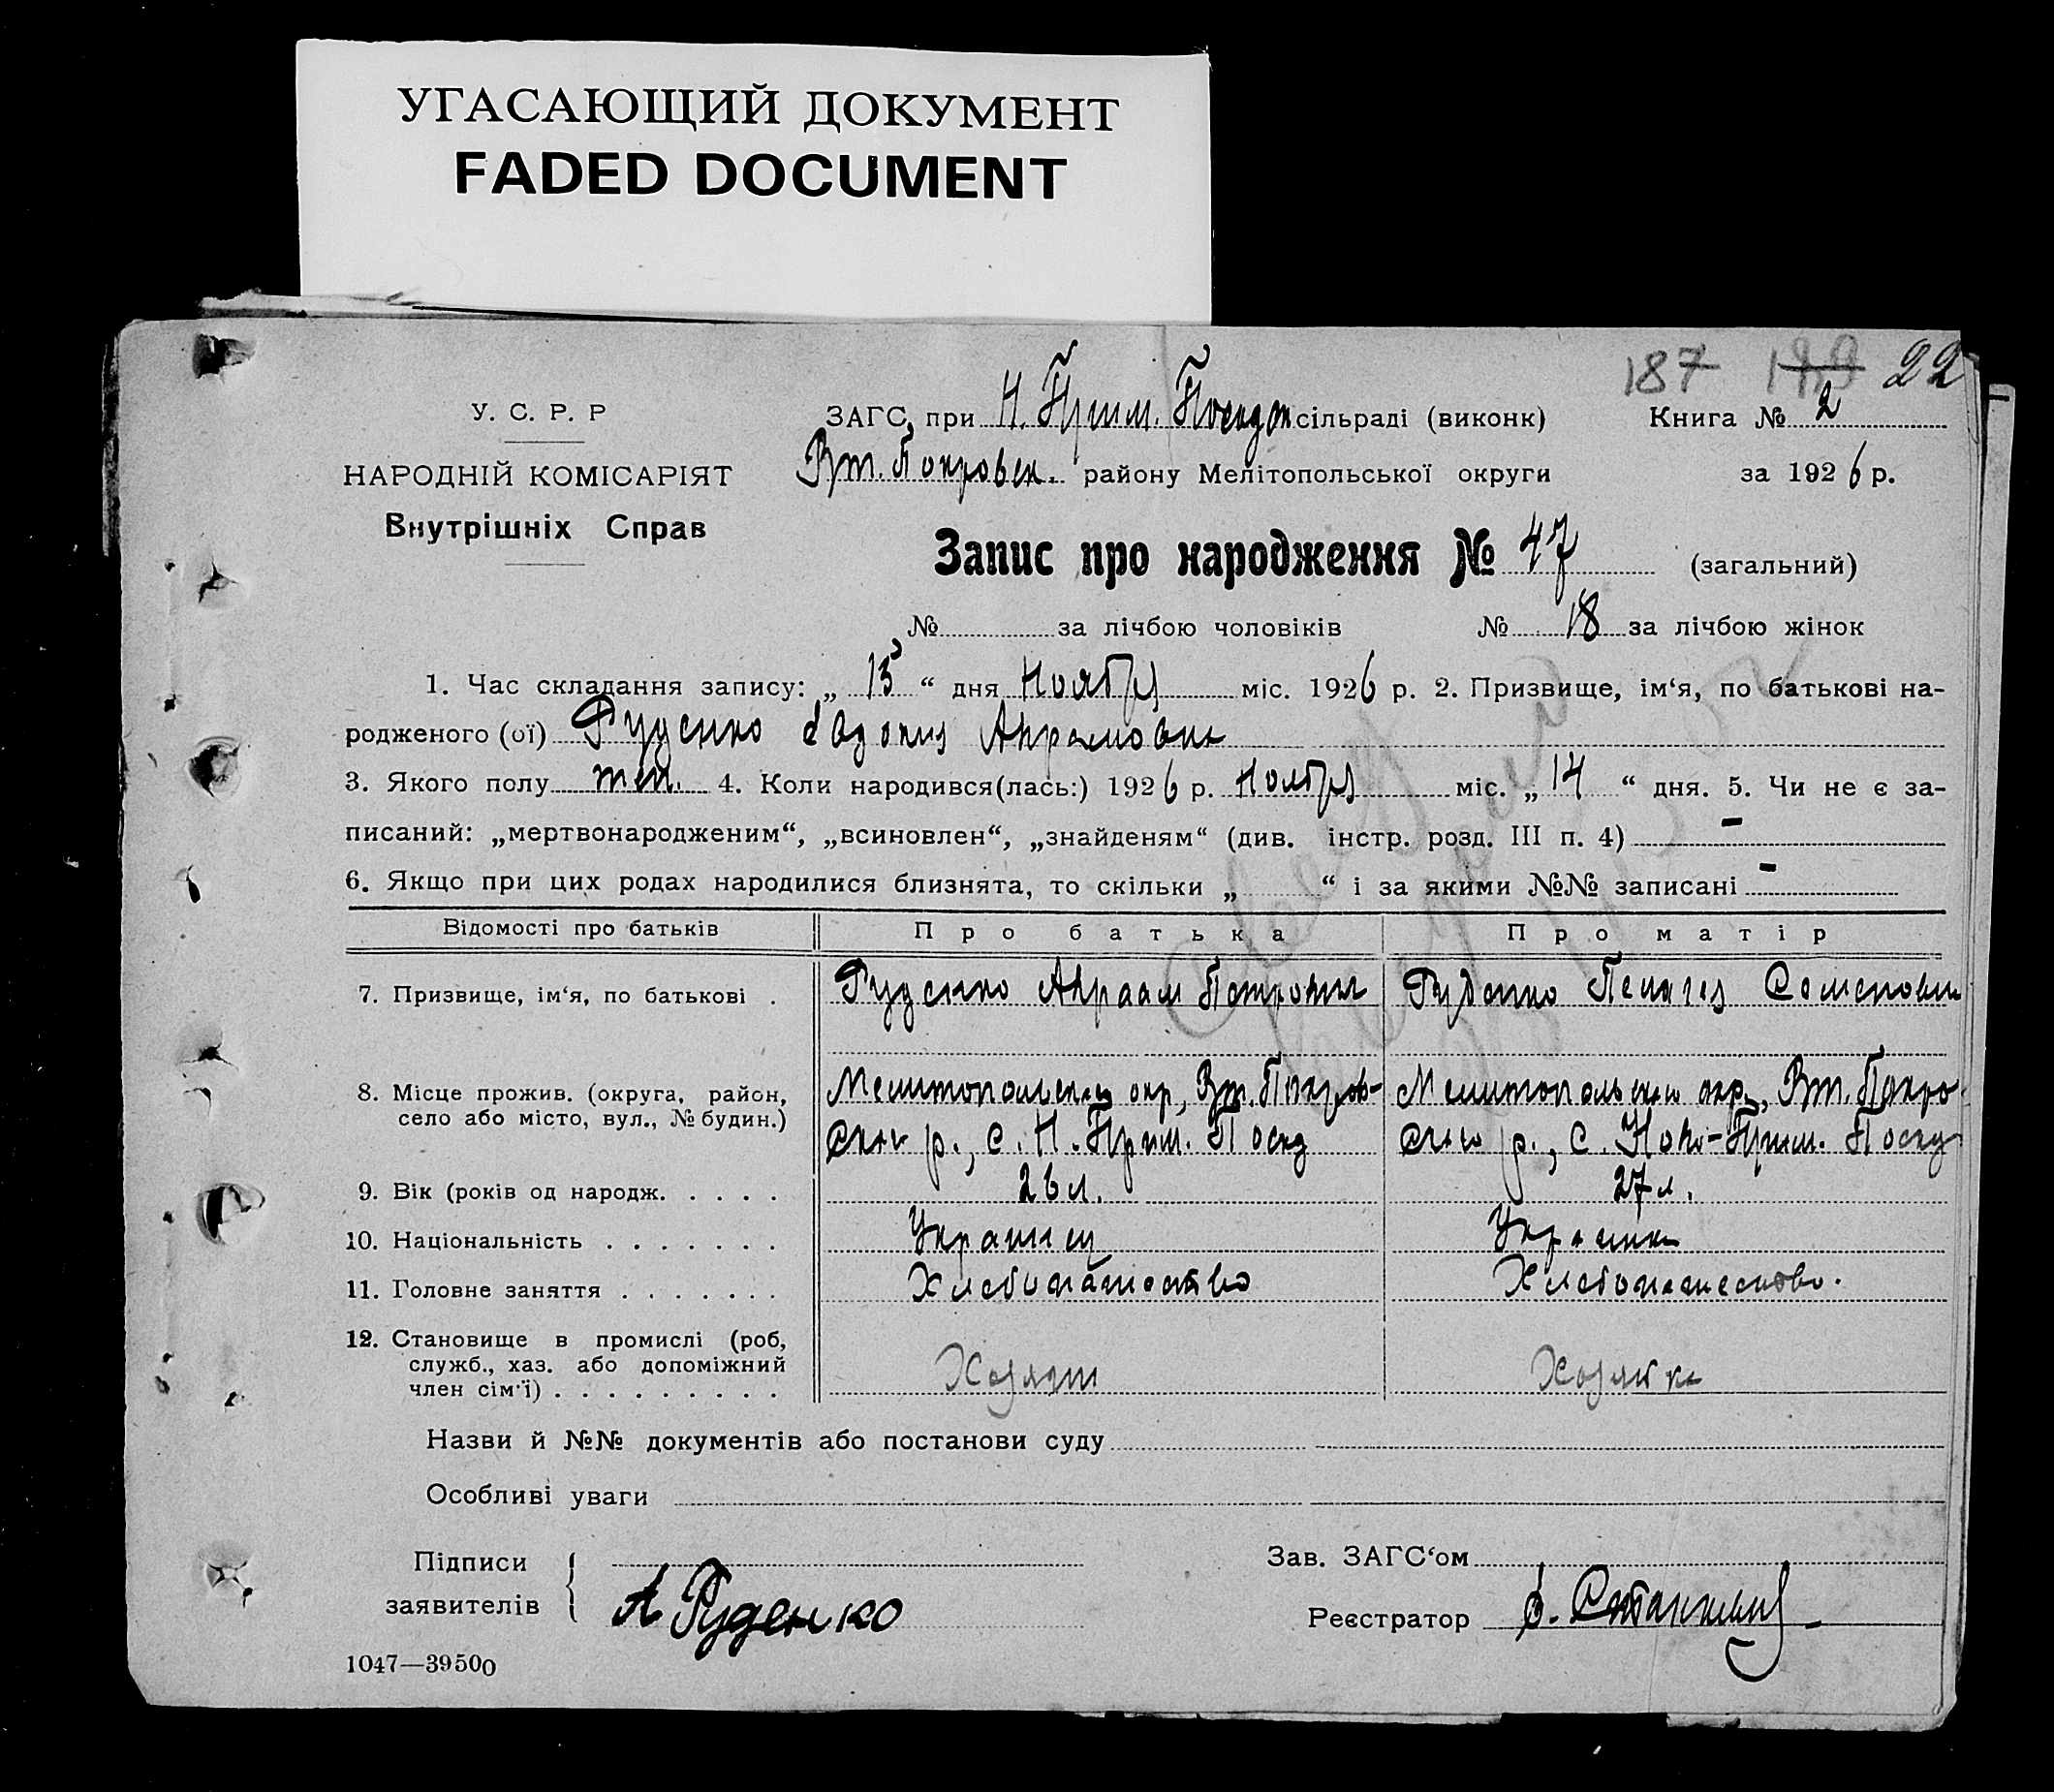 УГАСАЮЩИЙ ДОКУМЕНТ
FADED DOCUMENT
187 22
У. С. Р. Р
НАРОДНІЙ КОМІСАРІЯТ
Внутрішніх Справ
ЗАГС при Н. Прим. Посад сільраді (виконк)
Вт. Покровск. району Мелітопольської округи
Книга № 2
за 1926 р.
Запис про народження № 47 (загальний)
№ за лічбою чоловіків № 18 за лічбою жінок
1. Час складання запису: „ 15 “ дня Ноября міс. 1926 р. 2. Призвище, ім‘я, по батькові на-
родженого (ої) Руденко
3. Якого полу жен. 4. Коли народився(лась:) 1926 р. Ноября міс. „ 14 “ дня. 5. Чи не є за-
писаний: „мертвонародженим“, „всиновлен“, „знайденям“ (див. інстр. розд. III п. 4) -
6. Якщо при цих родах народилися близнята, то скільки „ “ і за якими №№ записані -
Відомості про батьків Про батька Про матір
7. Призвище, ім‘я, по батькові . Руденко Авраам Петрович Руденко Пелагея Семеновн
8. Місце прожив. (округа, район, Мелитопольская окр, Вт. Покров- Мелитопольская окр., Вт. Покро
село або місто, вул., № будин.) ская р., с. Н. Прим. Посад ская р., с. Ново-Прим. Посад
9. Вік (років од народж. . . . . 26 л. 27 л.
10. Національність . . . . . . . Украинец Украинка
11. Головне заняття . . . . . . . Хлебопашество Хлебопашество.
12. Становище в промислі (роб,
служб., хаз. або допоміжний
член сім‘ї) . . . . . . . . . Хозяин Хозяйка
Назви й №№ документів або постанови суду
Особливі уваги
Підписи
заявителів А Руденко
Зав. ЗАГС‘ом
Реєстратор
1047—39500